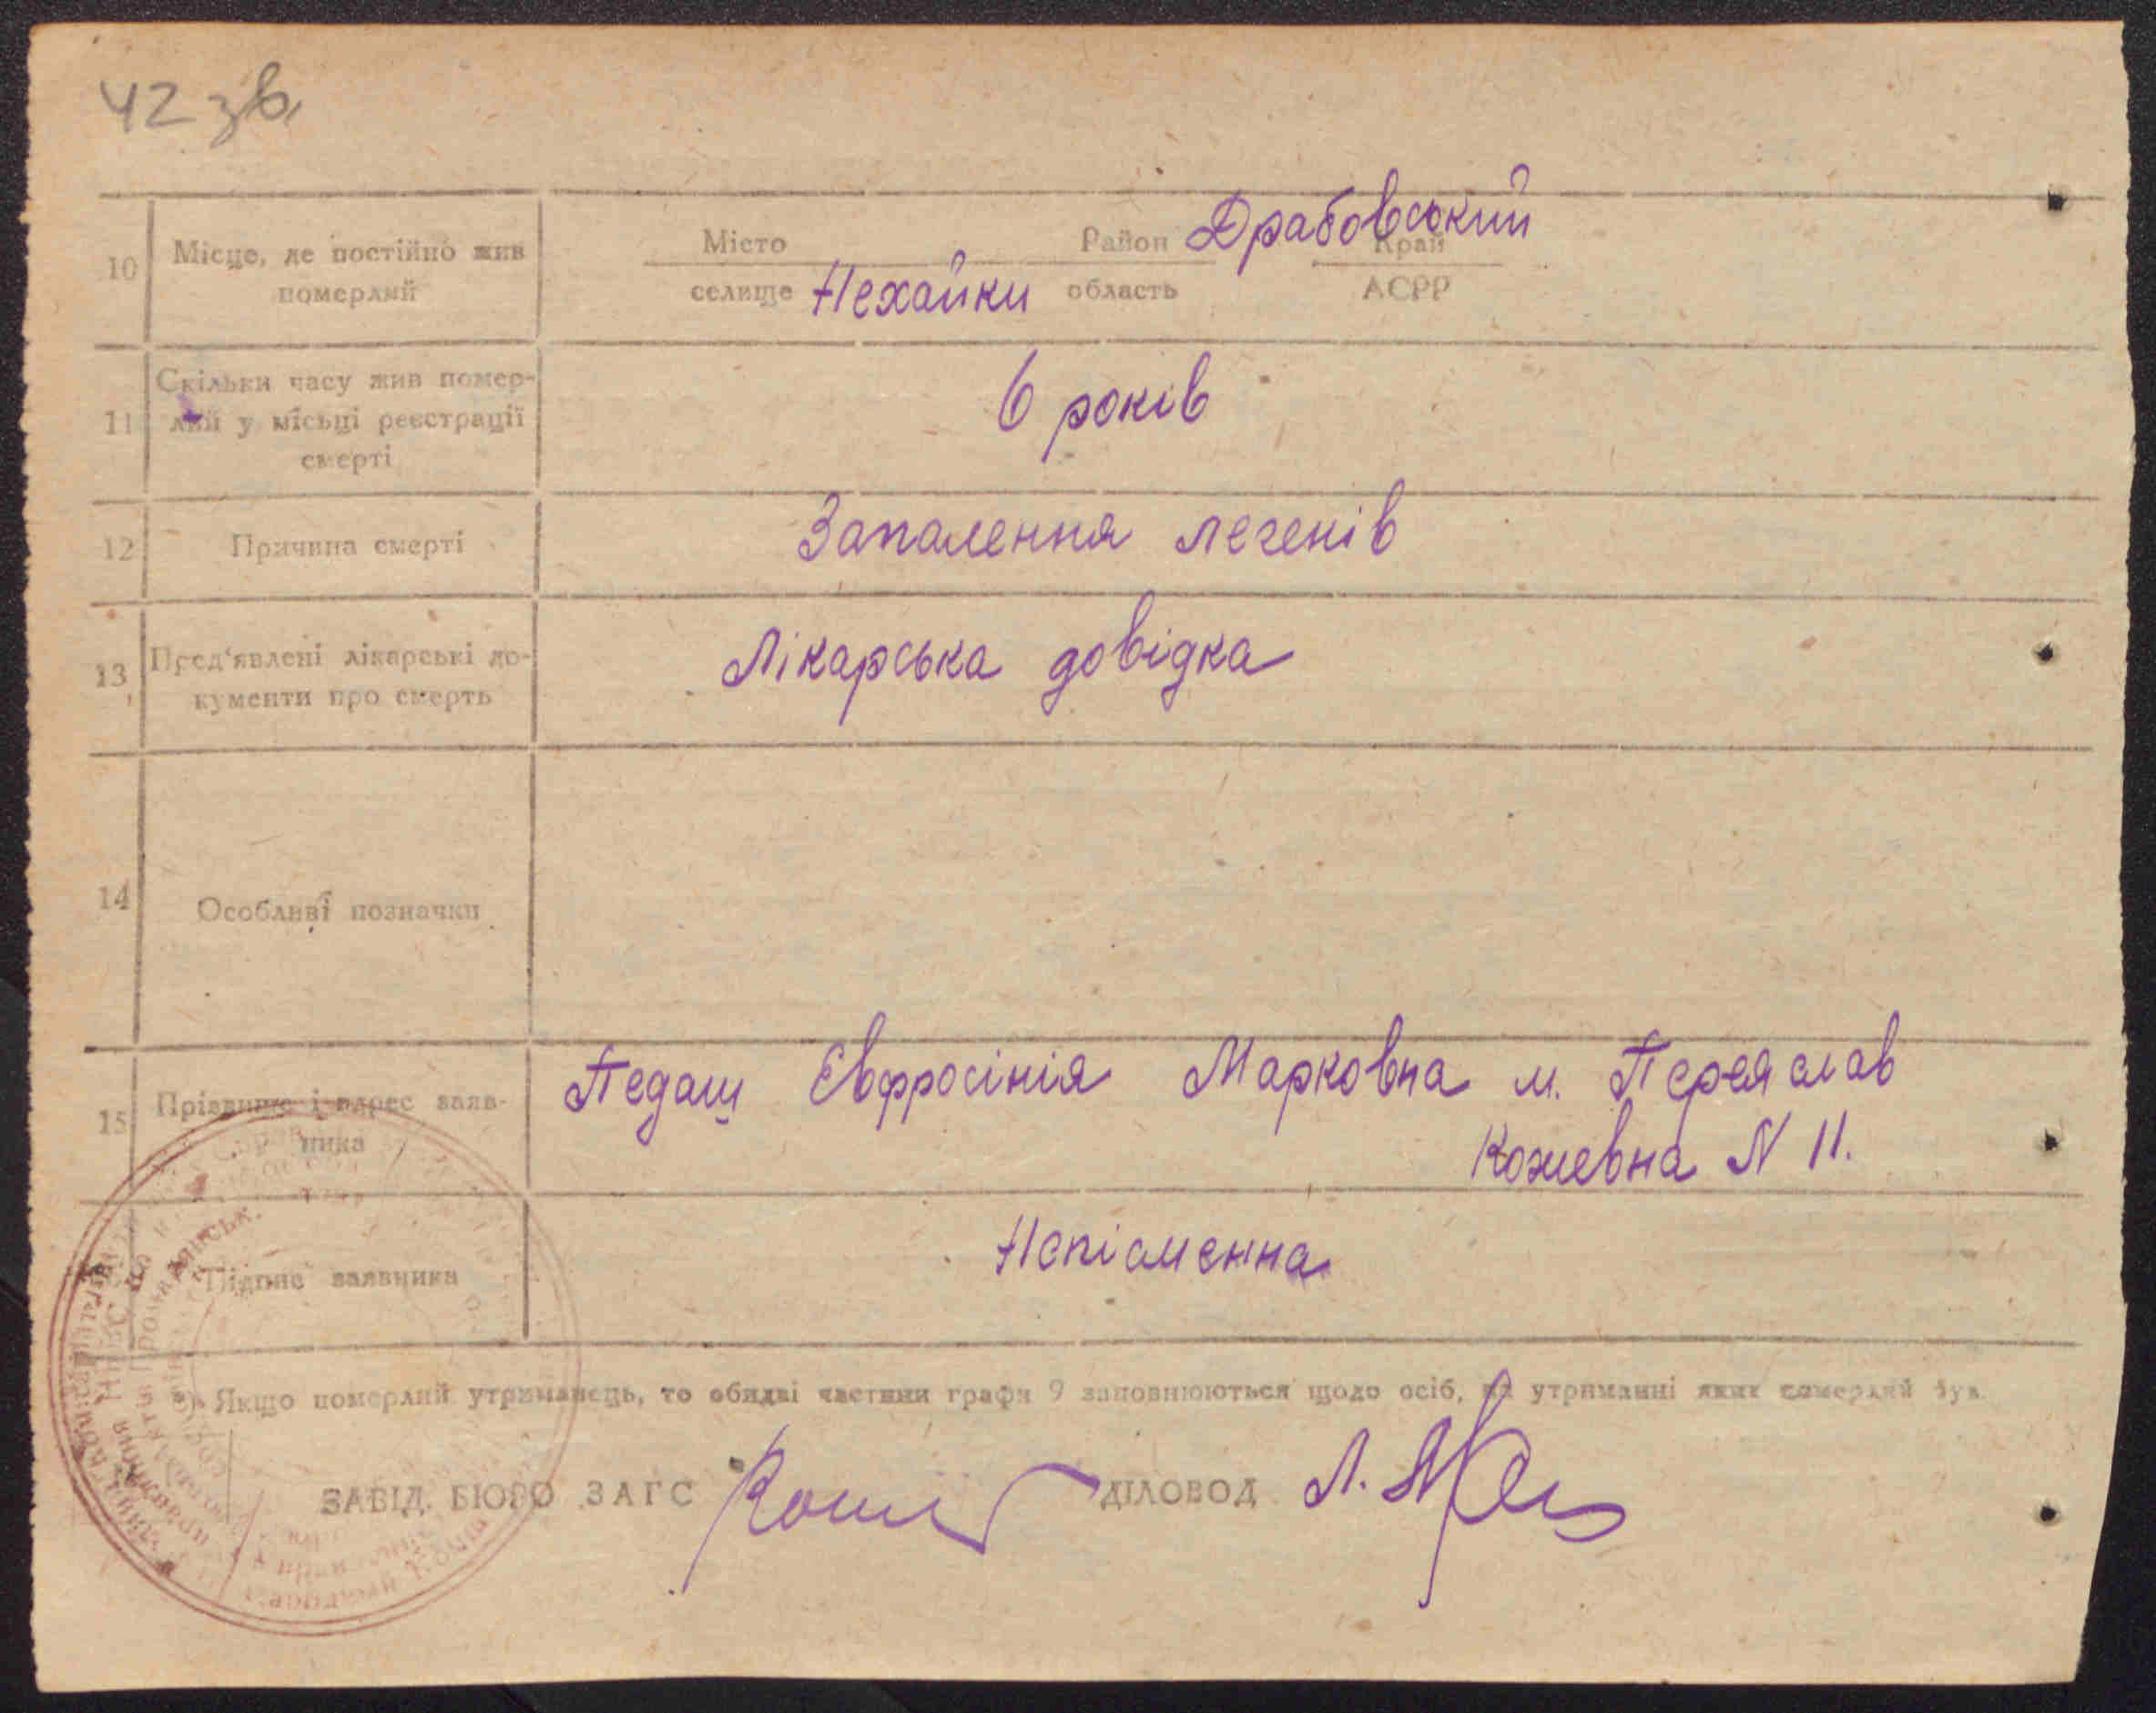 42 зв.
10 Місце, де постійно жив Місто Район Драбовський Край
померлий селище Нехайки область АСРР
Скільки часу жив помер-
11 лий у місьці реєстрації 6 років
смерті
12 Причина смерті Запалення легенів
13 Пред'явлені лікарські до- Лікарська довідка
кументи про смерть
14 Особливі позначки
15 Прізвище і адрес заяв- Педаш Євфросінія Марковна м. Переяслав
ника Кожевна N 11.
Підпис заявника Непісменна
Якщо померлий утриманець, то обидві частини графи 9 заповнюються щодо осіб, на утриманні яких померлий був
ЗАВІД. БЮРО ЗАГС ДІЛОВОД Л.